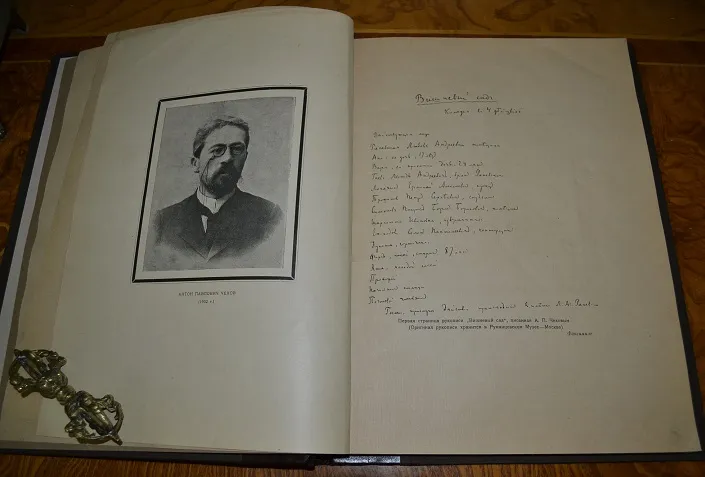 АНТОН ПАВЛОВИЧ ЧЕХОВ
(1902 г.)
Вишневый садъ.
Комедія въ 4 дѣйствіяхъ
Дѣйствующія лица
Раневская Любовь Андреевна, помѣщица
Аня, ея дочь, 17 лѣтъ
Варя, ея пріемная дочь,
Гаевъ Леонидъ Андреевичъ, братъ Раневской
Лопахинъ Ермолай Алексѣевичъ, купецъ
Трофимовъ Петръ Сергѣевичъ, студентъ
Симеоновъ-Пищикъ Борисъ Борисовичъ, помѣщикъ
Шарлотта Ивановна, гувернантка
Епиходовъ Семенъ Пантелеевичъ, конторщикъ
Дуняша, горничная
Фирсъ, лакей, старикъ 87 лѣтъ
Яша, молодой лакей
Прохожій
Начальникъ станціи
Почтовый чиновникъ
Первая страница рукописи „Вишневый сад“, писанная А. П. Чеховым
(Оригинал рукописи хранится в Румянцевском Музее—Москва)